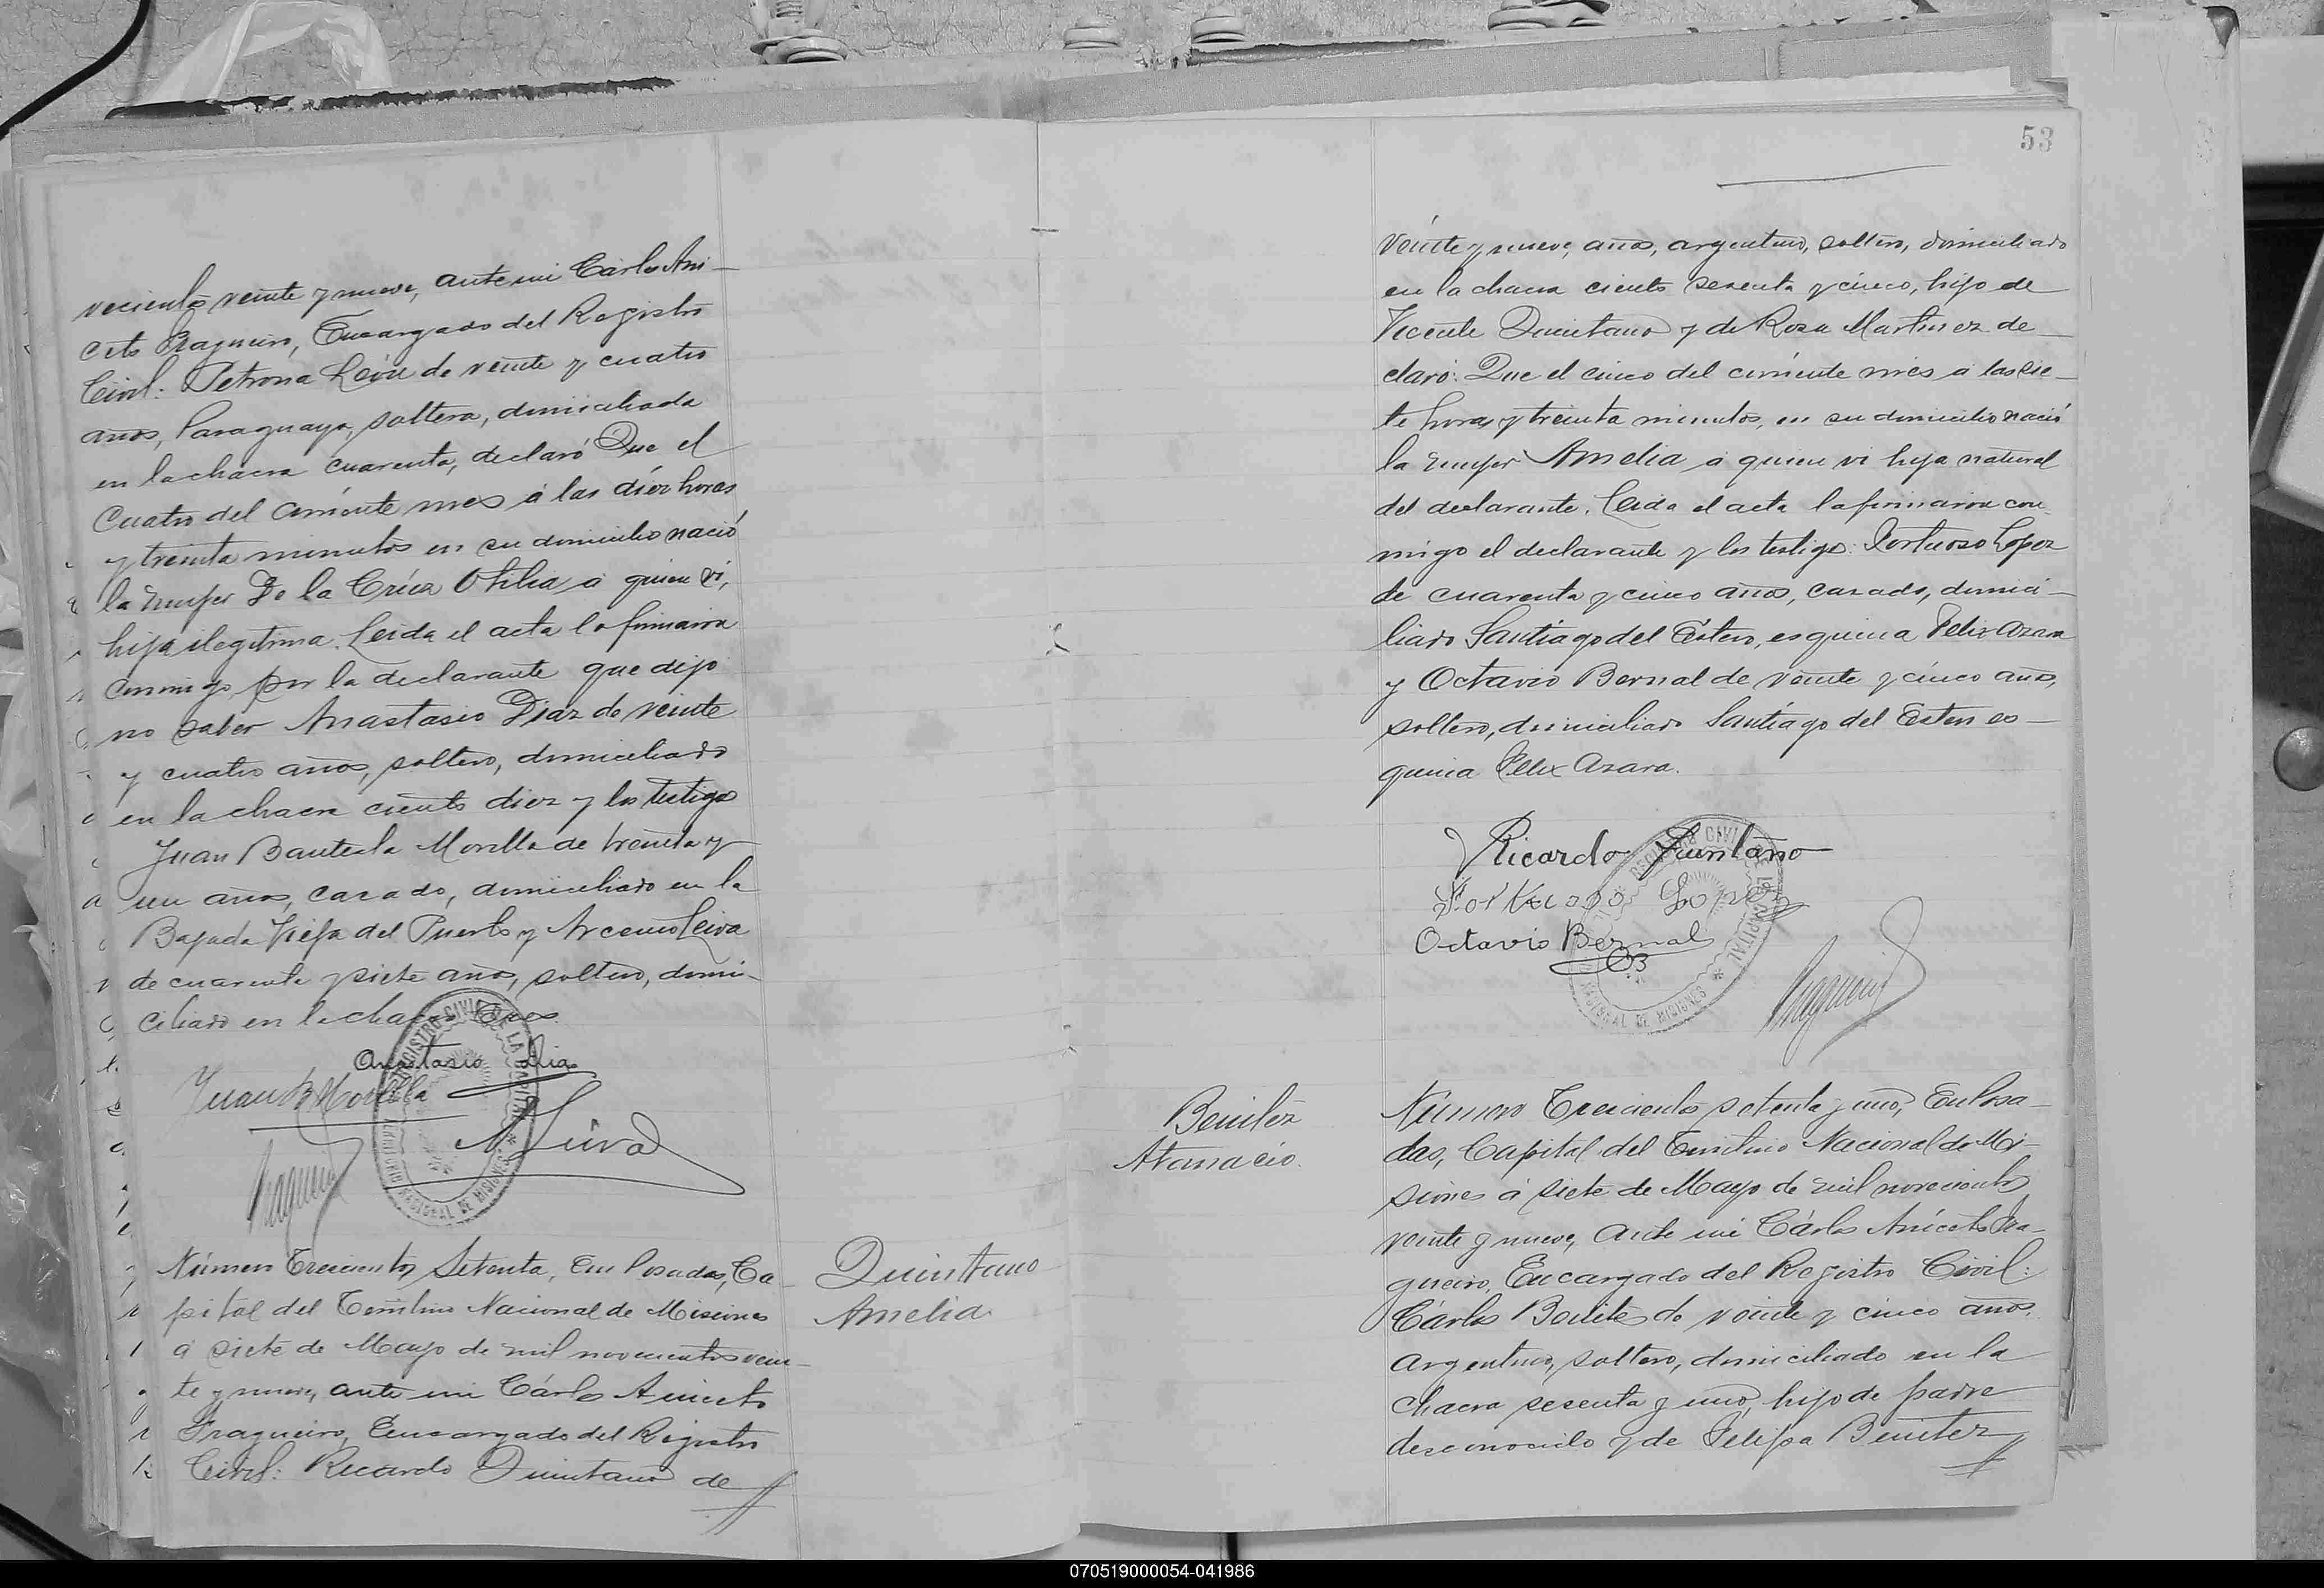 vecientos veinte y nueve, ante mi Cárlos Ani-
ceto Fragueiro, Encargado del Registro
Civil: Petrona León de veinte y cuatro
años, Paraguaya, soltera, domiciliada
en la chacra cuarenta, declaró Que el
cuatro del corriente mes á las diez horas
y treinta minutos en su domicilio nació
la mujer De la Crúz Otilia a quien ví,
hija ilegitima. Leida el acta la firmaron
conmigo, por la declarante que dijo
no saber Anastasio Diaz de veinte
y cuatro años, soltero, domiciliado
en la chacra ciento diez y los testigos
Juan Bautista Morilla de treinta y
un años, casado, domiciliado en la
Bajada Vieja del Puerto y Arcenio Leiva
de cuarenta y siete años, soltero, domi-
ciliado en la chacra Tres.
Anastasio Diaz
Juan B Morilla
A Leiva
Fragueiro
REGISTRO CIVIL DE LA CAPITAL * TERRITORIO NACIONAL DE MISIONES *
Quintano
Amelia
Número Trecientos Setenta, En Posadas, Ca-
pital del Territorio Nacional de Misiones
á siete de Mayo de mil novecientos vein-
te y nueve, ante mi Cárlos Aniceto
Fragueiro, Encargado del Registro
Civil: Ricardo Quintano de
53
veinte y nueve, años, argentino, soltero, domiciliado
en la chacra ciento sesenta y cinco, hijo de
Vicente Quintano y de Rosa Martinez de-
claró: Que el cinco del corriente mes á las sie-
te horas y treinta minutos, en su domicilio nació
la mujer Amelia á quien vi hija natural
del declarante. Leida el acta la firmaron con-
migo el declarante y los testigos: Fortunoso Lopez
de cuarenta y cinco años, casado, domici-
liado Santiago del Estero, esquina Felix Azara
y Octavio Bernal de veinte y cinco años,
soltero, domiciliado Santiago del Estero es-
quina Felix Azara.
Ricardo Quintano
Octavio Bernal
OB
Fragueiro
REGISTRO CIVIL DE LA CAPITAL * TERRITORIO NACIONAL DE MISIONES *
Benitez
Atanacio.
Número Trecientos setenta y uno, En Posa-
das, Capital del Territorio Nacional de Mi-
siones á siete de Mayo de mil novecientos
veinte y nueve, ante mi Cárlos Aniceto Fra-
gueiro, Encargado del Registro Civil:
Cárlos Benitez de veinte y cinco años,
argentino, soltero, domiciliado en la
chacra sesenta y uno, hijo de padre
desconocido y de Felipa Benitez
070519000054-041986